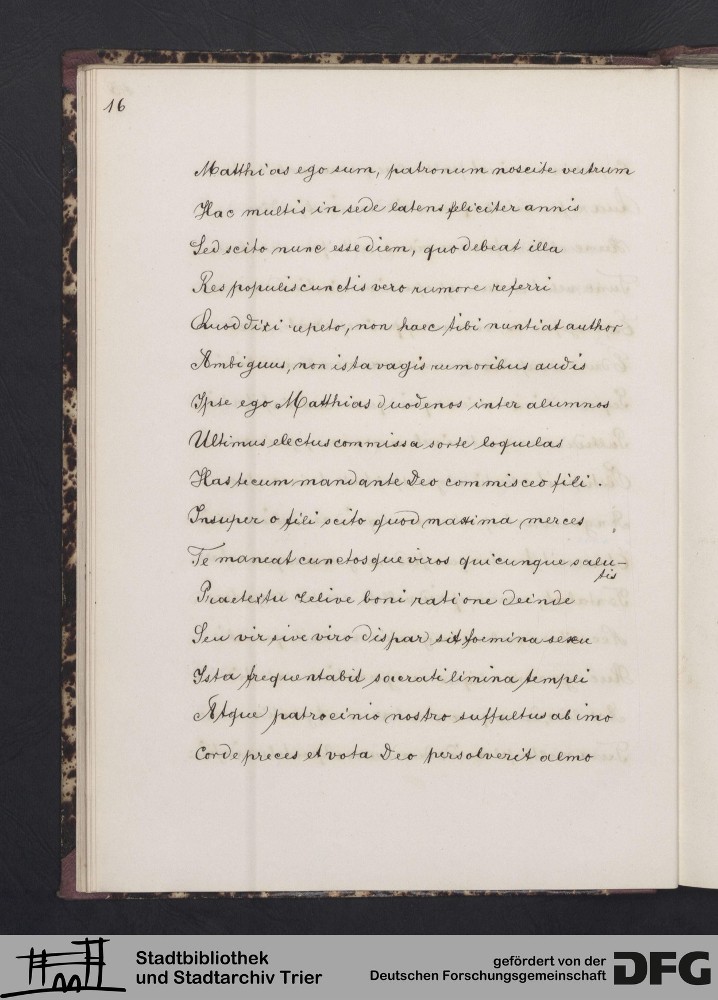 16
Matthias ego sum, patronum noscite vestrum
Hac multis in sede latens feliciter annis
Sed scito nunc esse diem, quo debeat illa
Res populis cunctis vero rumore referri
Quod dixi repeto, non haec tibi nuntiat author
Ambiguus, non ista vagis rumoribus audis
Ipse ego Matthias duodenos inter alumnos
Ultimus electus commissa sorte loquelas
Has tecum mandante Deo commisceo fili.
Insuper o fili scito quod maxima merces
Te maneat cunctosque viros quicunque salu-
tis
Praetextu zelive boni ratione deinde
Seu vir sive viro dispar sit foemina sexu
Ista frequentabit sacrati limina templi
Atque patrocinio nostro suffultus ab imo
Corde preces et vota Deo persolverit almo
Stadtbibliothek
und Stadtarchiv Trier
gefördert von der
Deutschen Forschungsgemeinschaft
DFG